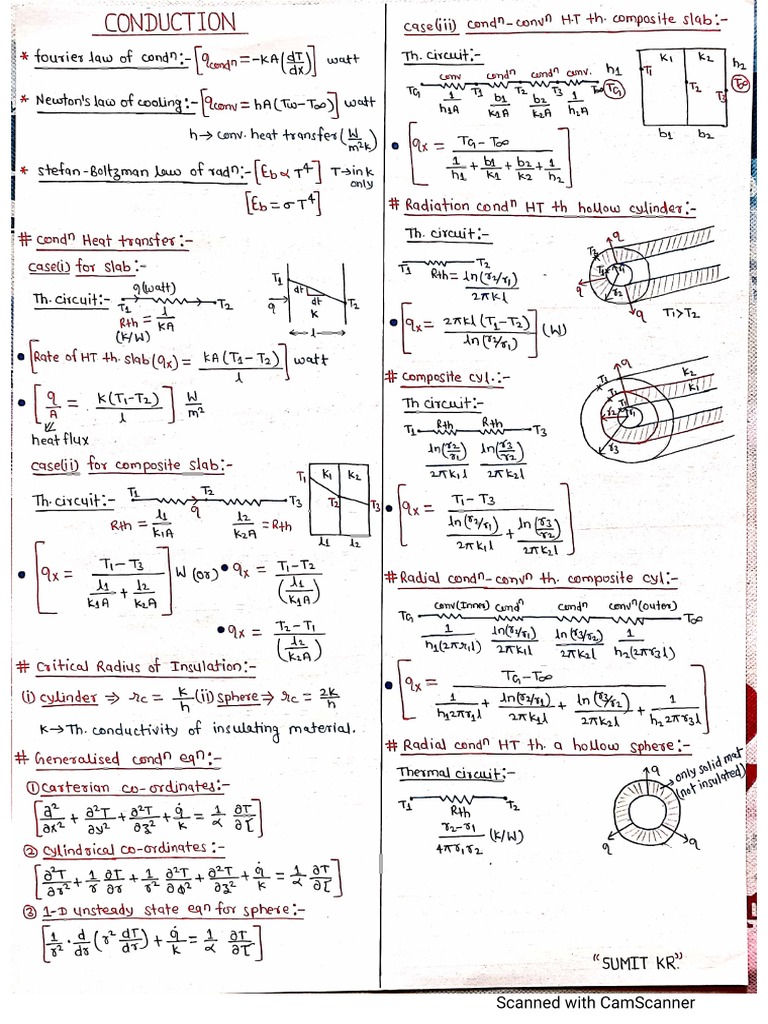 CONDUCTION
* fourier law of condⁿ:- [q_condⁿ = -KA(dT/dx)] watt
* Newton's law of cooling:- [q_conv = hA(Tw-T∞)] watt
h → conv. heat transfer (W/m²K)
* stefan-Boltzman law of radⁿ:- [Eb ∝ T⁴] T→ in k only
[Eb = σT⁴]
# condⁿ Heat transfer:-
case(i) for slab:-
Th. circuit:- T1 q(watt) T2
Rth = l/KA
(K/W)
T1 q dt dt K T2 l
• [Rate of HT th. slab (qx) = KA(T1-T2)/l] watt
• [q/A = K(T1-T2)/l] W/m²
heat flux
case(ii) for composite slab:-
Th. circuit:- T1 T2 T3
q
Rth = l1/K1A l2/K2A = Rth
T1 K1 K2 T2 T3 l1 l2
• [qx = (T1-T3)/(l1/K1A + l2/K2A)] W (or) • qx = (T1-T2)/(l1/K1A)
• qx = (T2-T1)/(l2/K2A)
# Critical Radius of Insulation:-
(i) cylinder ⇒ rc = K/h (ii) sphere ⇒ rc = 2K/h
K → Th. conductivity of insulating material.
# Generalised condⁿ eqⁿ:-
① carterian co-ordinates:-
[∂²/∂x² + ∂²T/∂y² + ∂²T/∂z² + q̇/k = 1/α ∂T/∂τ]
② cylindrical co-ordinates:-
[∂²T/∂r² + 1/r ∂T/∂r + 1/r² ∂²T/∂φ² + ∂²T/∂z² + q̇/k = 1/α ∂T/∂τ]
③ 1-D unsteady state eqⁿ for sphere:-
[1/r² · d/dr (r² dT/dr) + q̇/k = 1/α ∂T/∂τ]
case(iii) condⁿ-convⁿ H.T th. composite slab:-
Th. circuit:-
conv condⁿ condⁿ conv.
TG T1 T2 T3 T∞
1/h1A b1/K1A b2/K2A 1/h2A
h1 TG T1 K1 K2 T2 T3 h2 T∞ b1 b2
• [qx = (TG-T∞)/(1/h1 + b1/K1 + b2/K2 + 1/h2)]
# Radiation condⁿ HT th hollow cylinder:-
Th. circuit:-
T1 T2
Rth = ln(r2/r1)/2πKl
q T2 T1 r1 r2 q q T1>T2
• [qx = 2πKl(T1-T2)/ln(r2/r1)] (W)
# composite cyl.:-
Th circuit:-
T1 Rth Rth T3
ln(r2/r1)/2πK1l ln(r3/r2)/2πK2l
q K2 K1 r2 r1 r3
• [qx = (T1-T3)/(ln(r2/r1)/2πK1l + ln(r3/r2)/2πK2l)]
# Radial condⁿ-convⁿ th. composite cyl:-
TG conv(Inner) condⁿ condⁿ convⁿ(outer) T∞
1/h1(2πr1l) ln(r2/r1)/2πK1l ln(r3/r2)/2πK2l 1/h2(2πr3l)
• [qx = (TG-T∞)/(1/h12πr1l + ln(r2/r1)/2πK1l + ln(r3/r2)/2πK2l + 1/h22πr3l)]
# Radial condⁿ HT th. a hollow sphere:-
Thermal circuit:-
T1 T2
Rth
(r2-r1)/4πr1r2 (K/W)
q only solid mat (not insulated)
q q
"SUMIT KR."
Scanned with CamScanner